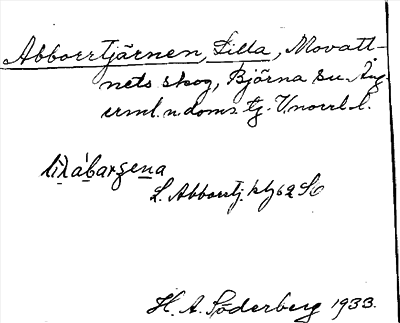 Abborrtjärnen, Lilla, Movatt-
nets skog, Björna sn. Ång-
erml. n. doms tg. V.norrl. l.
lìlábarʒena
L. Abborrtj. kbl 62 S6
H. A. Söderberg 1933.